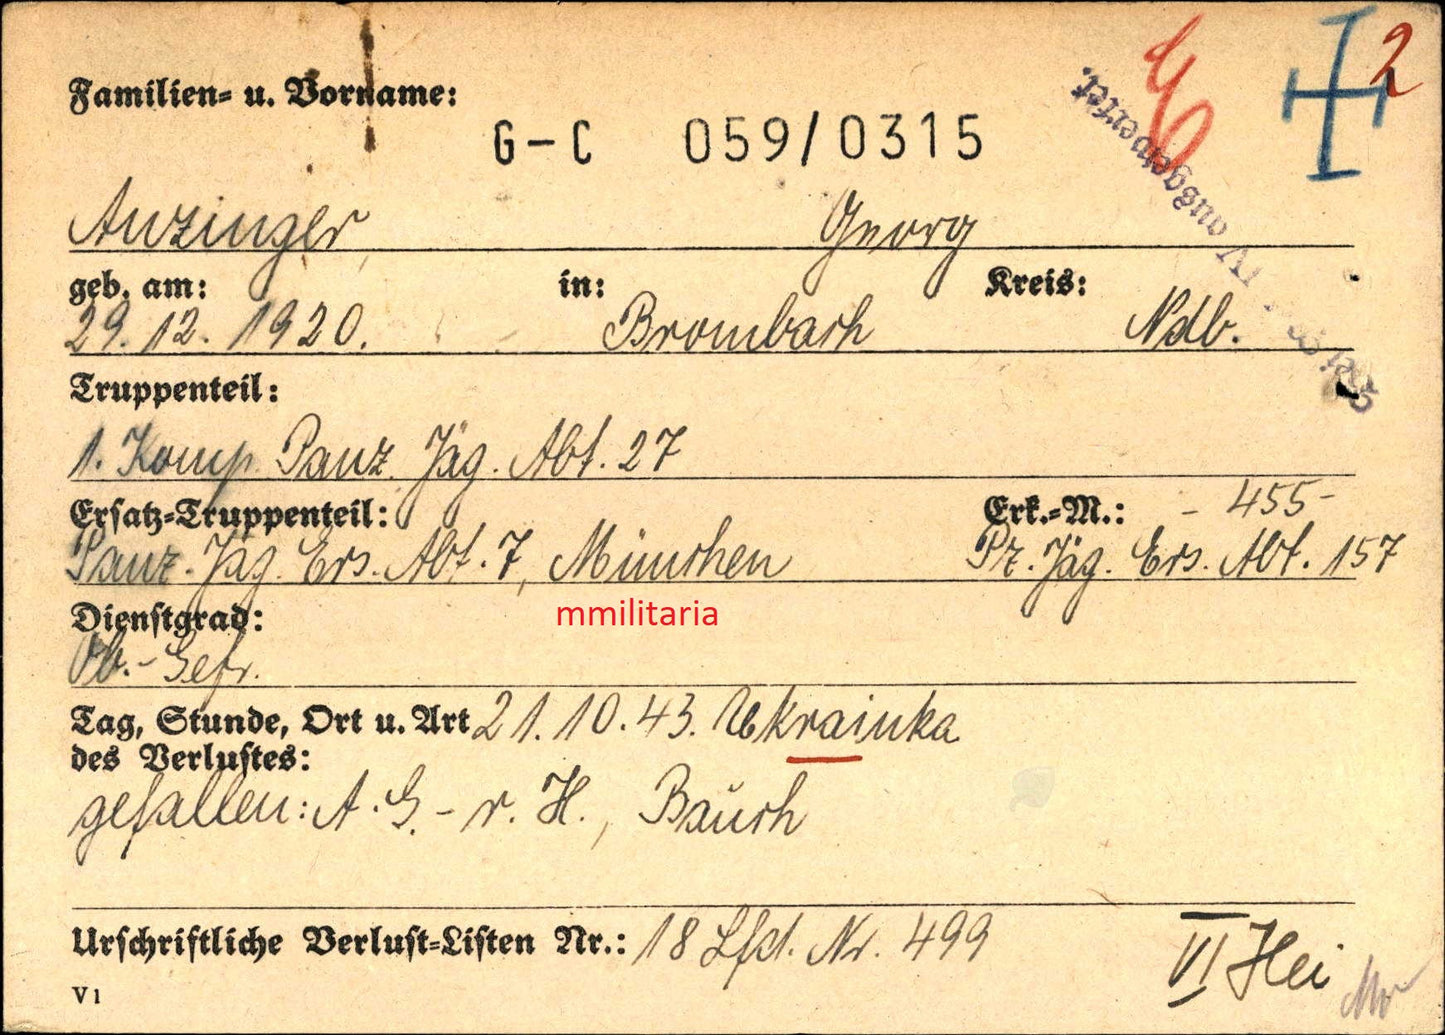 2
Familien- u. Vorname:
G-C 059/0315
Anzinger, Georg
geb. am: in: Kreis:
29. 12. 1920. Brombach Ndb.
Truppenteil:
1. Komp. Panz. Jäg. Abt. 27
Ersatz-Truppenteil: Erk.-M.: - 455-
Panz. Jäg. Ers. Abt. 7, München Pz. Jäg. Ers. Abt. 157
mmilitaria
Dienstgrad:
Ob.-Gefr.
Tag, Stunde, Ort u. Art 21. 10. 43. Ukrainka
des Verlustes:
gefallen: A. G. - r. H., Bauch
Urschriftliche Verlust-Listen Nr.: 18 Lfd. Nr. 499
VI Hei
V1
bei IV ausgewertet.